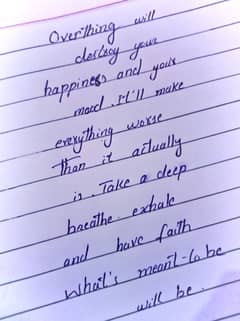 Overthing will
destroy your
happiness and your
mood. It'll make
everything worse
than it actually
is. Take a deep
breathe. exhale
and have faith
What's meant-to be
will be.